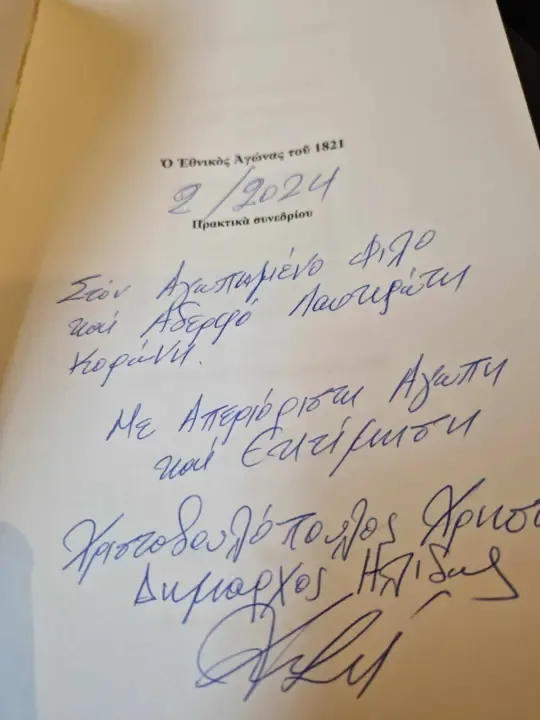 Ὁ Ἐθνικὸς Ἀγώνας τοῦ 1821
2/2024
Πρακτικὰ συνεδρίου
Στόν Αγαπημένο Φίλο
καί Αδερφό Παυσικράτη
Κοράκη.
Με Απεριόριστη Αγάπη
καί Εκτίμηση
Χριστοδουλόπουλος Χρηστ
Δημαρχος Ηλιδας